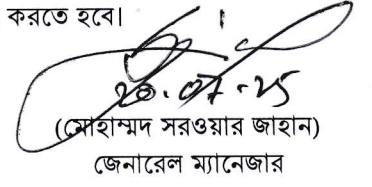 করতে হবে।
২০.০৭.২৫
(মোহাম্মদ সরওয়ার জাহান)
জেনারেল ম্যানেজার